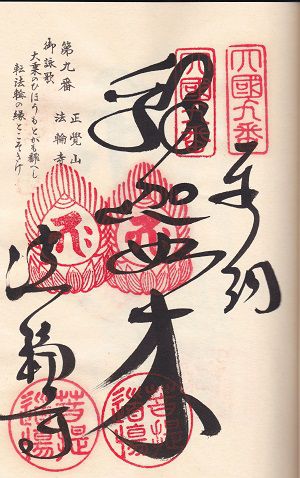 四國九番
奉納
四國九番
釈迦如来
法輪寺
菩提道場
菩提道場
第九番 正覺山 法輪寺
御詠歌
大乗のひほうもとがも飜へし
転法輪の縁とこそきけ